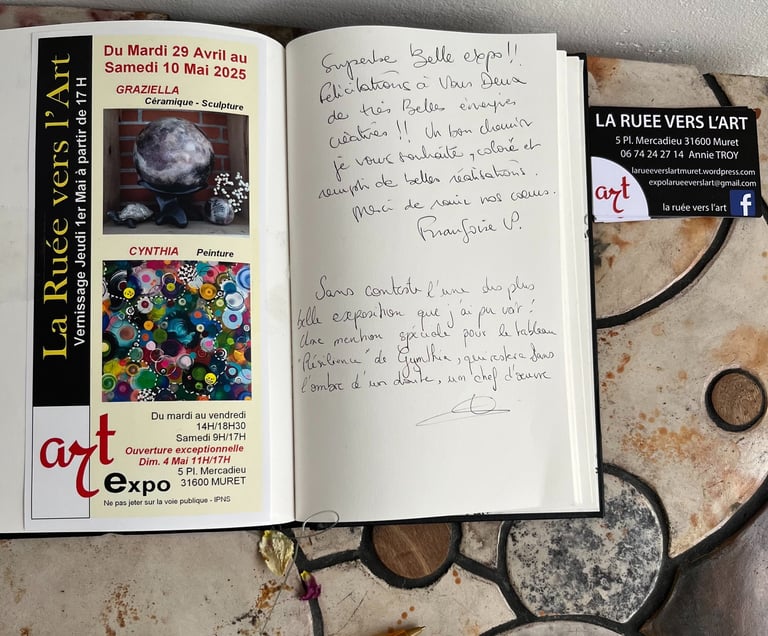 La Ruée vers l'Art
Vernissage Jeudi 1er Mai à partir de 17 H
Du Mardi 29 Avril au
Samedi 10 Mai 2025
GRAZIELLA
Céramique - Sculpture
CYNTHIA Peinture
art
expo
Du mardi au vendredi
14H/18H30
Samedi 9H/17H
Ouverture exceptionnelle
Dim. 4 Mai 11H/17H
5 Pl. Mercadieu
31600 MURET
Ne pas jeter sur la voie publique - IPNS
Superbe Belle expo !!
Félicitations à Vous Deux
de très Belles énergies
créatives !! Un bon chemin
je vous souhaite, coloré et
rempli de belles réalisations.
Merci de ravir nos coeurs.
Françoise V.
Sans conteste l'une des plus
belle exposition que j'ai pu voir !
Une mention spéciale pour le tableau
"Résilience" de Cynthia, qui restera sans
l'ombre d'un doute, un chef d'oeuvre
LA RUEE VERS L'ART
5 Pl. Mercadieu 31600 Muret
06 74 24 27 14 Annie TROY
larueeverslartmuret.wordpress.com
expolarueeverslart@gmail.com
art
la ruée vers l'art f